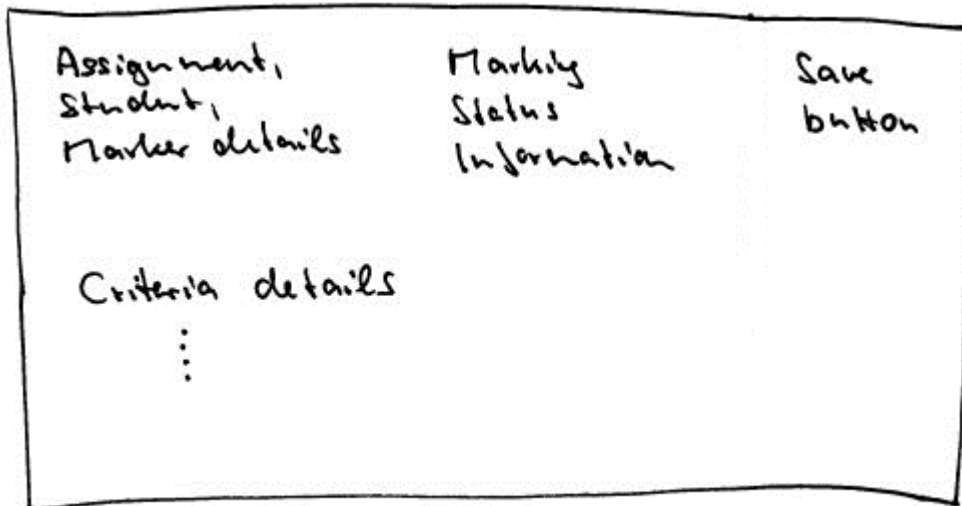 Assignment,
Student,
Marker details
Marking
Status
Information
Save
button
Criteria details